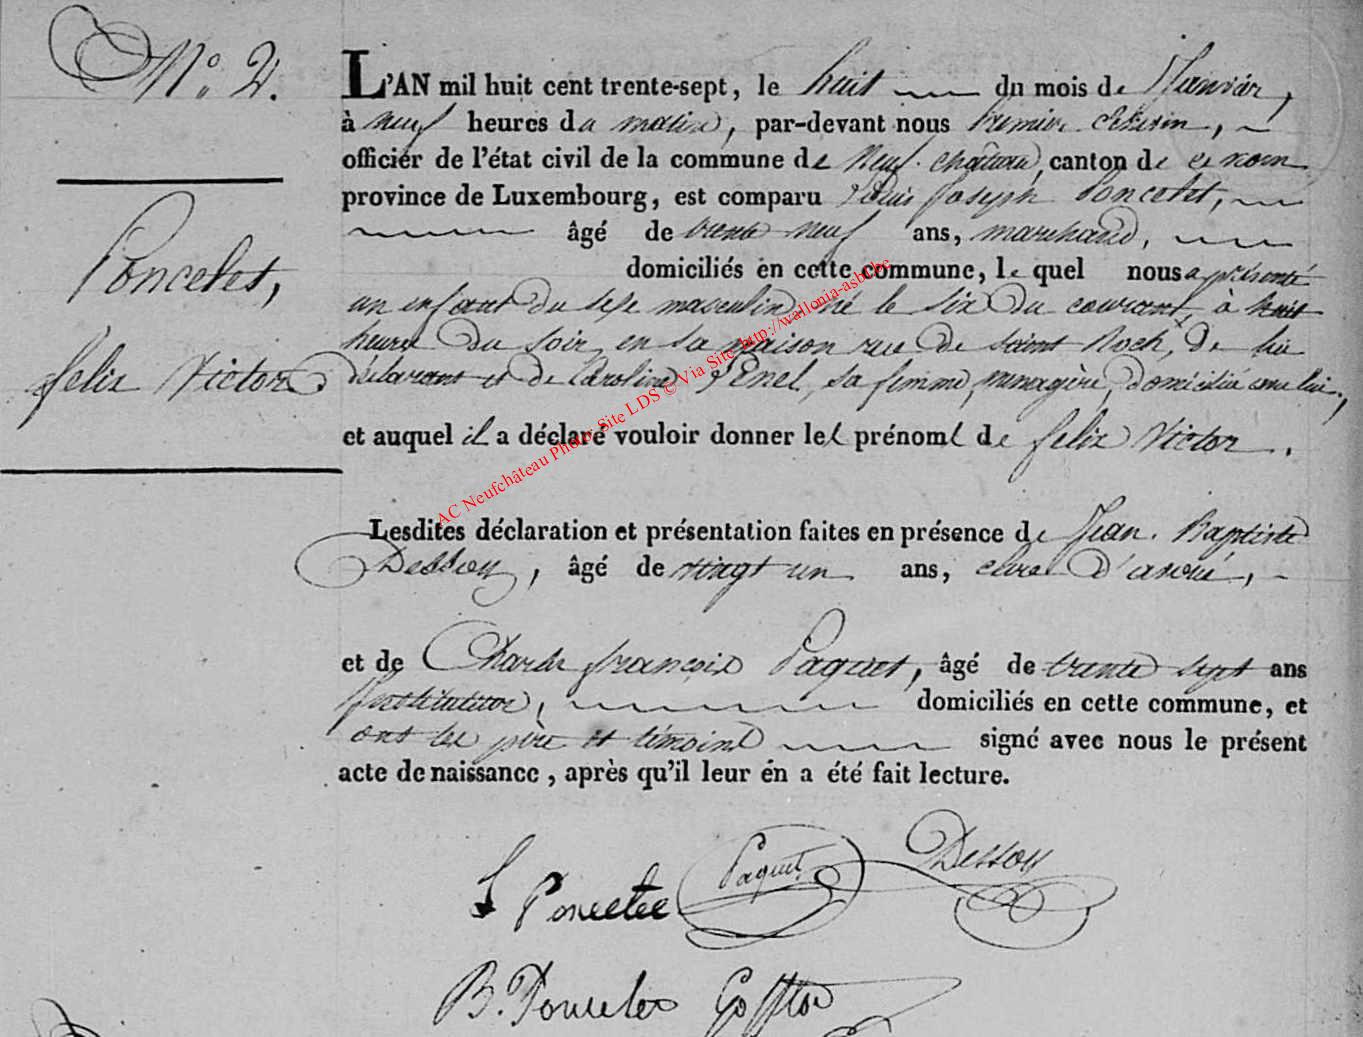 N.° 2.
L'AN mil huit cent trente-sept, le huit du mois de Janvier,
à neuf heures du matin, par-devant nous Premier Echevin,
officier de l'état civil de la commune de Neufchâteau, canton de ce nom
province de Luxembourg, est comparu Louis Joseph Poncelet,
âgé de trente neuf ans, marchand,
domiciliés en cette commune, lequel nous a présenté
un enfant du sexe masculin, né le six du courant, à huit
heures du soir, en sa maison rue de saint Roch, de lui
déclarant et de Caroline sa femme, ménagère, domiciliée avec lui,
et auquel il a déclaré vouloir donner les prénoms de felix Victor.
Poncelet,
felix Victor
Lesdites déclaration et présentation faites en présence de Jean Baptiste
Dessoy, âgé de vingt un ans, clerc d'avoué,
et de Charles françois Paquet, âgé de trente sept ans
Instituteur, domiciliés en cette commune, et
ont les père et témoins signé avec nous le présent
acte de naissance, après qu'il leur en a été fait lecture.
L Poncelet Paquet Dessoy
B. Poncelet
AC Neufchâteau Photos Site LDS © Via Site http://wallonia-asbl.be